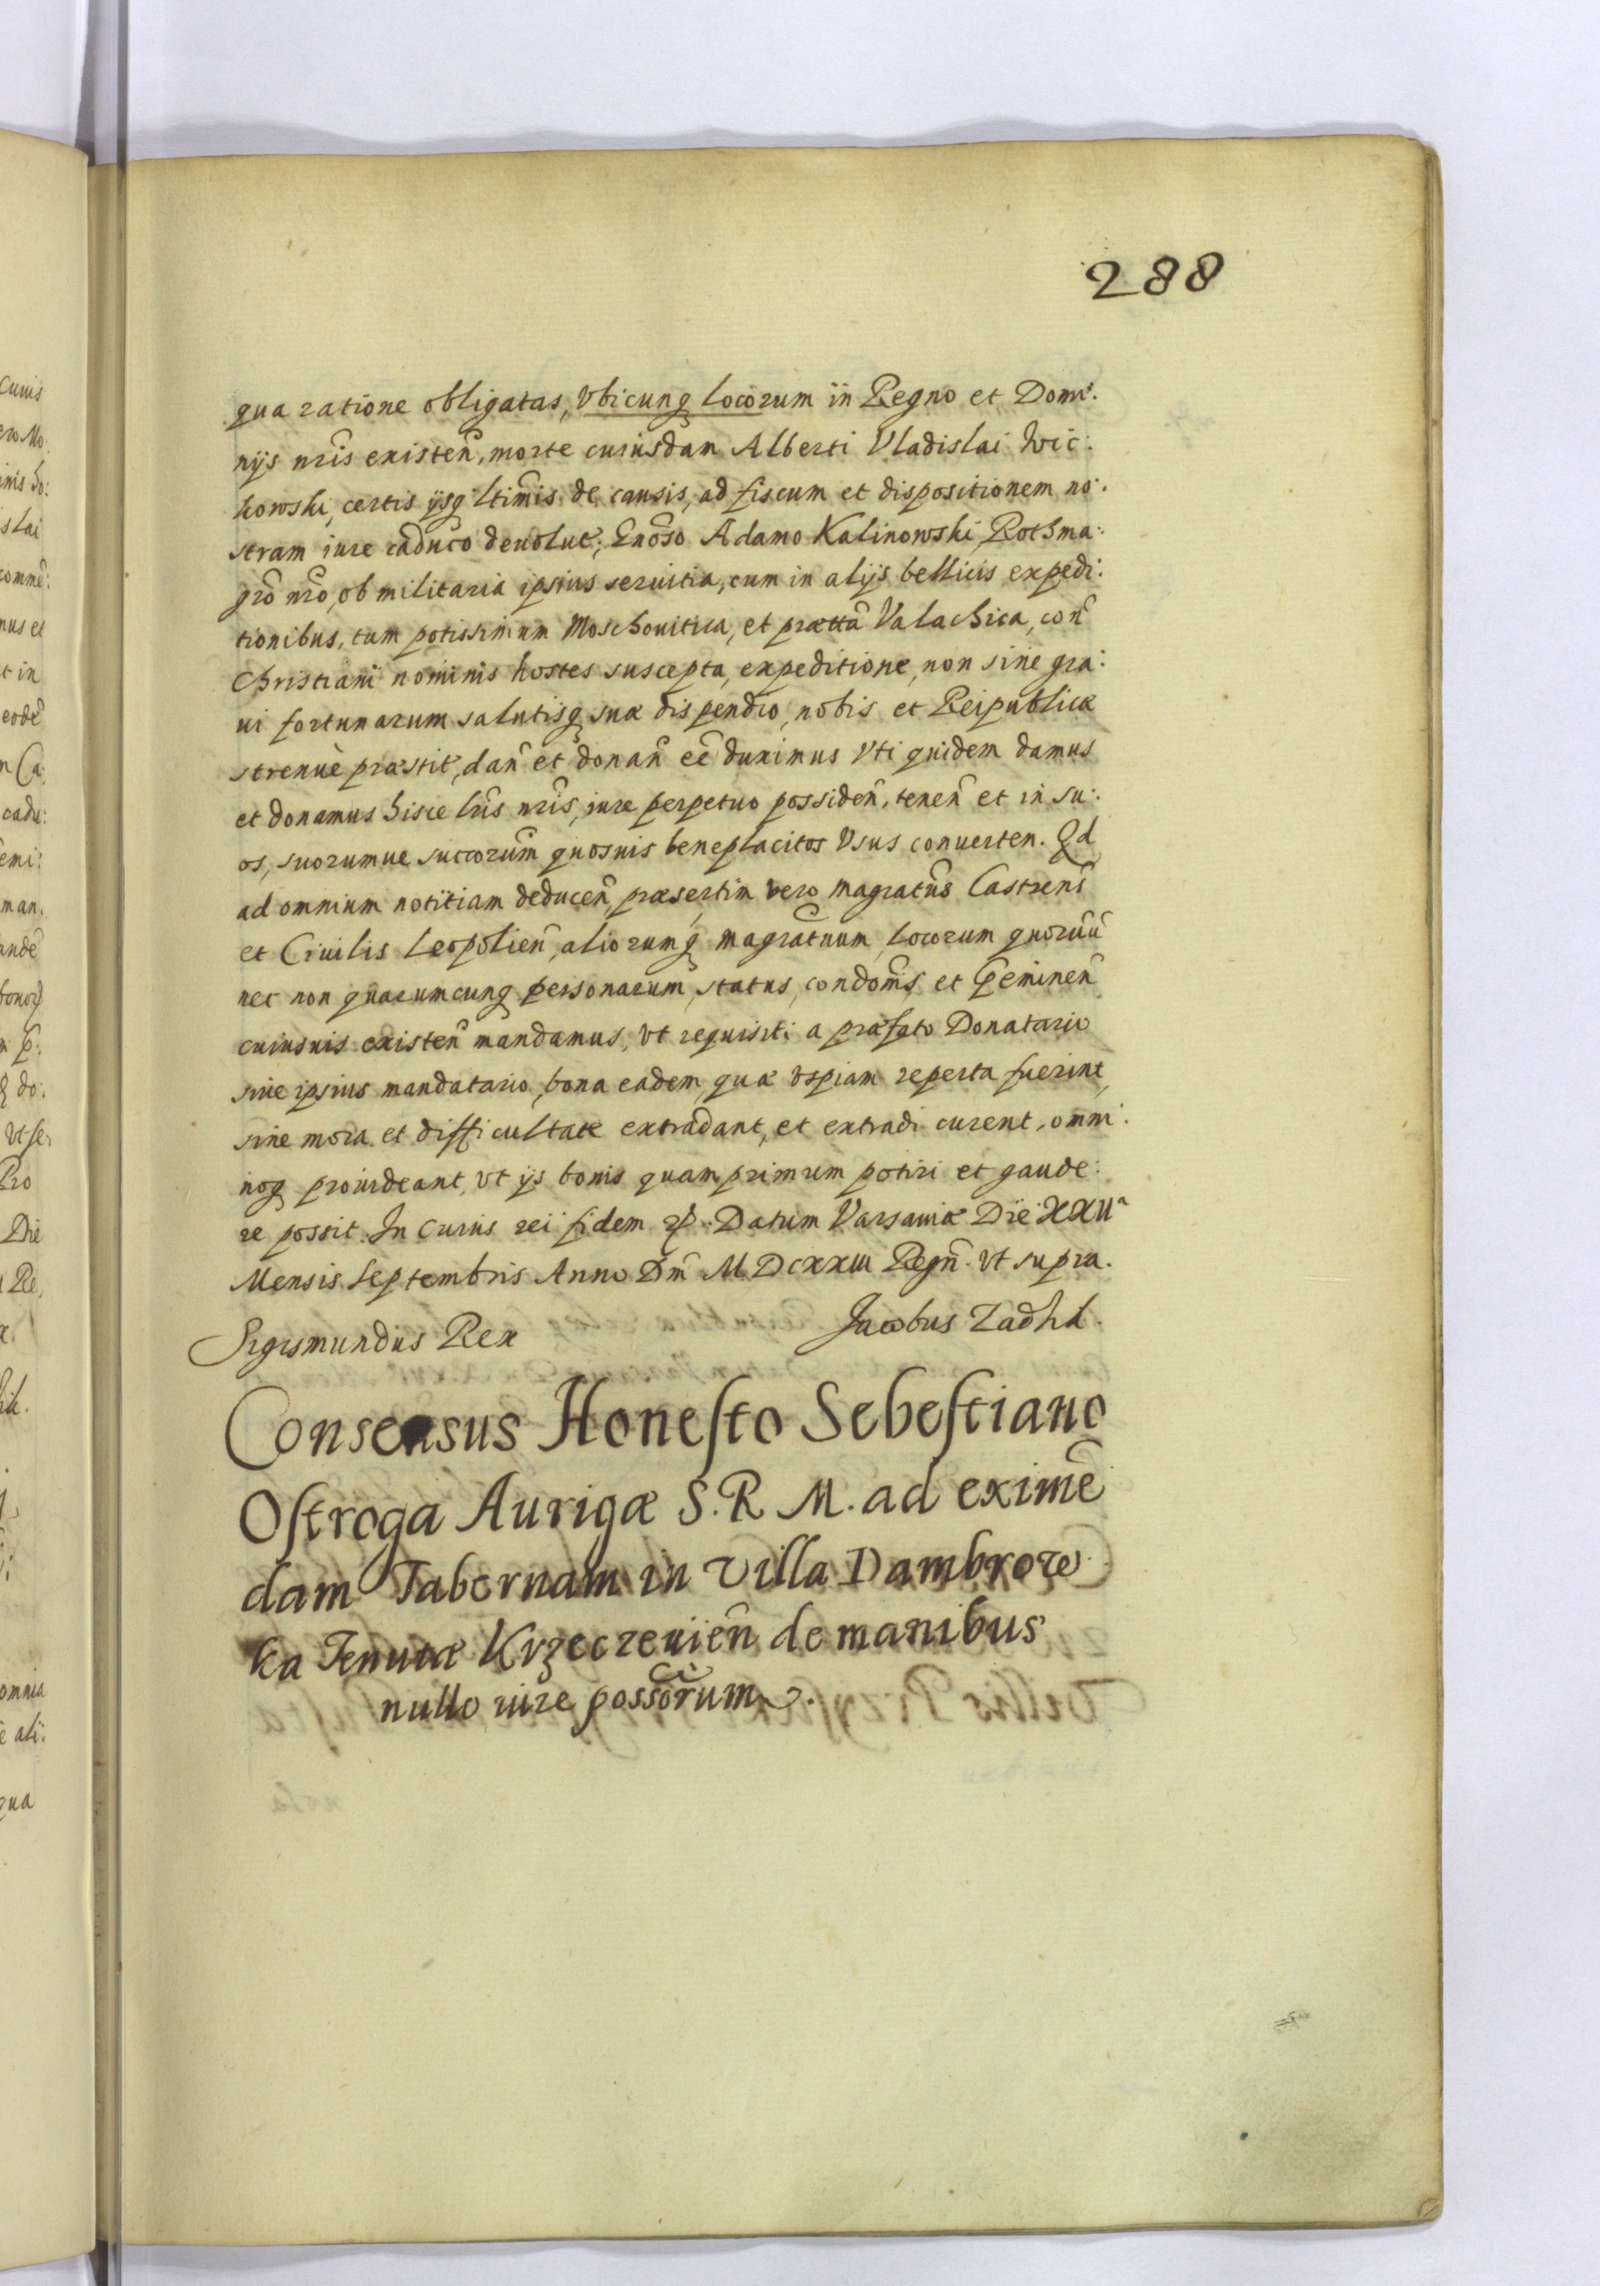 288
qua ratione obligatas, Vbicunq locorum in Regno et Domi:
nijs nris existen, morte cuiusdam Alberti Vladislai Wic:
howski, certis ijsq ltimis de causis, ad fiscum et dispositionem no:
stram iure caduco deuolut, Gnoso Adamo Kalinowski Rothma:
gro nro, ob militaria ipsius seruitia, cum in alijs bellicis expedi:
tionibus, tum potissimum Moschouitica, et prætta Valachica, con
Christiani nominis hostes suscepta, expeditione, non sine gra:
ui fortunarum salutisq suæ dispendio, nobis et Reipublicæ
strenuè præstit, dan et donan ee duximus Vti quidem damus
et donamus hisce lris nris, iure perpetuo possiden, tenen et in su:
os, suorumue succorum quosuis beneplacitos Vsus conuerten. Qd
ad omnium notitiam deducen, præsertim vero magratus Castren
et Ciuilis Leopolien, aliorumq magratuum, locorum quorum
nec non quarumcunq personarum, status, condonis, et præeminen
cuiusuis existen mandamus, Vt requisiti a præfato Donatario
siue ipsius mandatario, bona eadem, quæ vspiam reperta fuerint,
sine mora et difficultate extradant, et extradi curent, omni:
noq prouideant, Vt ijs bonis quam primum potiri et gaude:
re possit. In cuius rei fidem Datum Varsauiæ Die XXVIIa
Mensis Septembris Anno Dni MDCXXIII Regn. Vt supra.
Sigismundus Rex Jacobus Zadhik.
Consensus Honesto Sebestiano
Ostroga Aurigæ S. R. M. ad eximen
dam Tabernam in Villa Dambrow
ka Tenutæ Krzeczeuien de manibus
nullo iure possorum